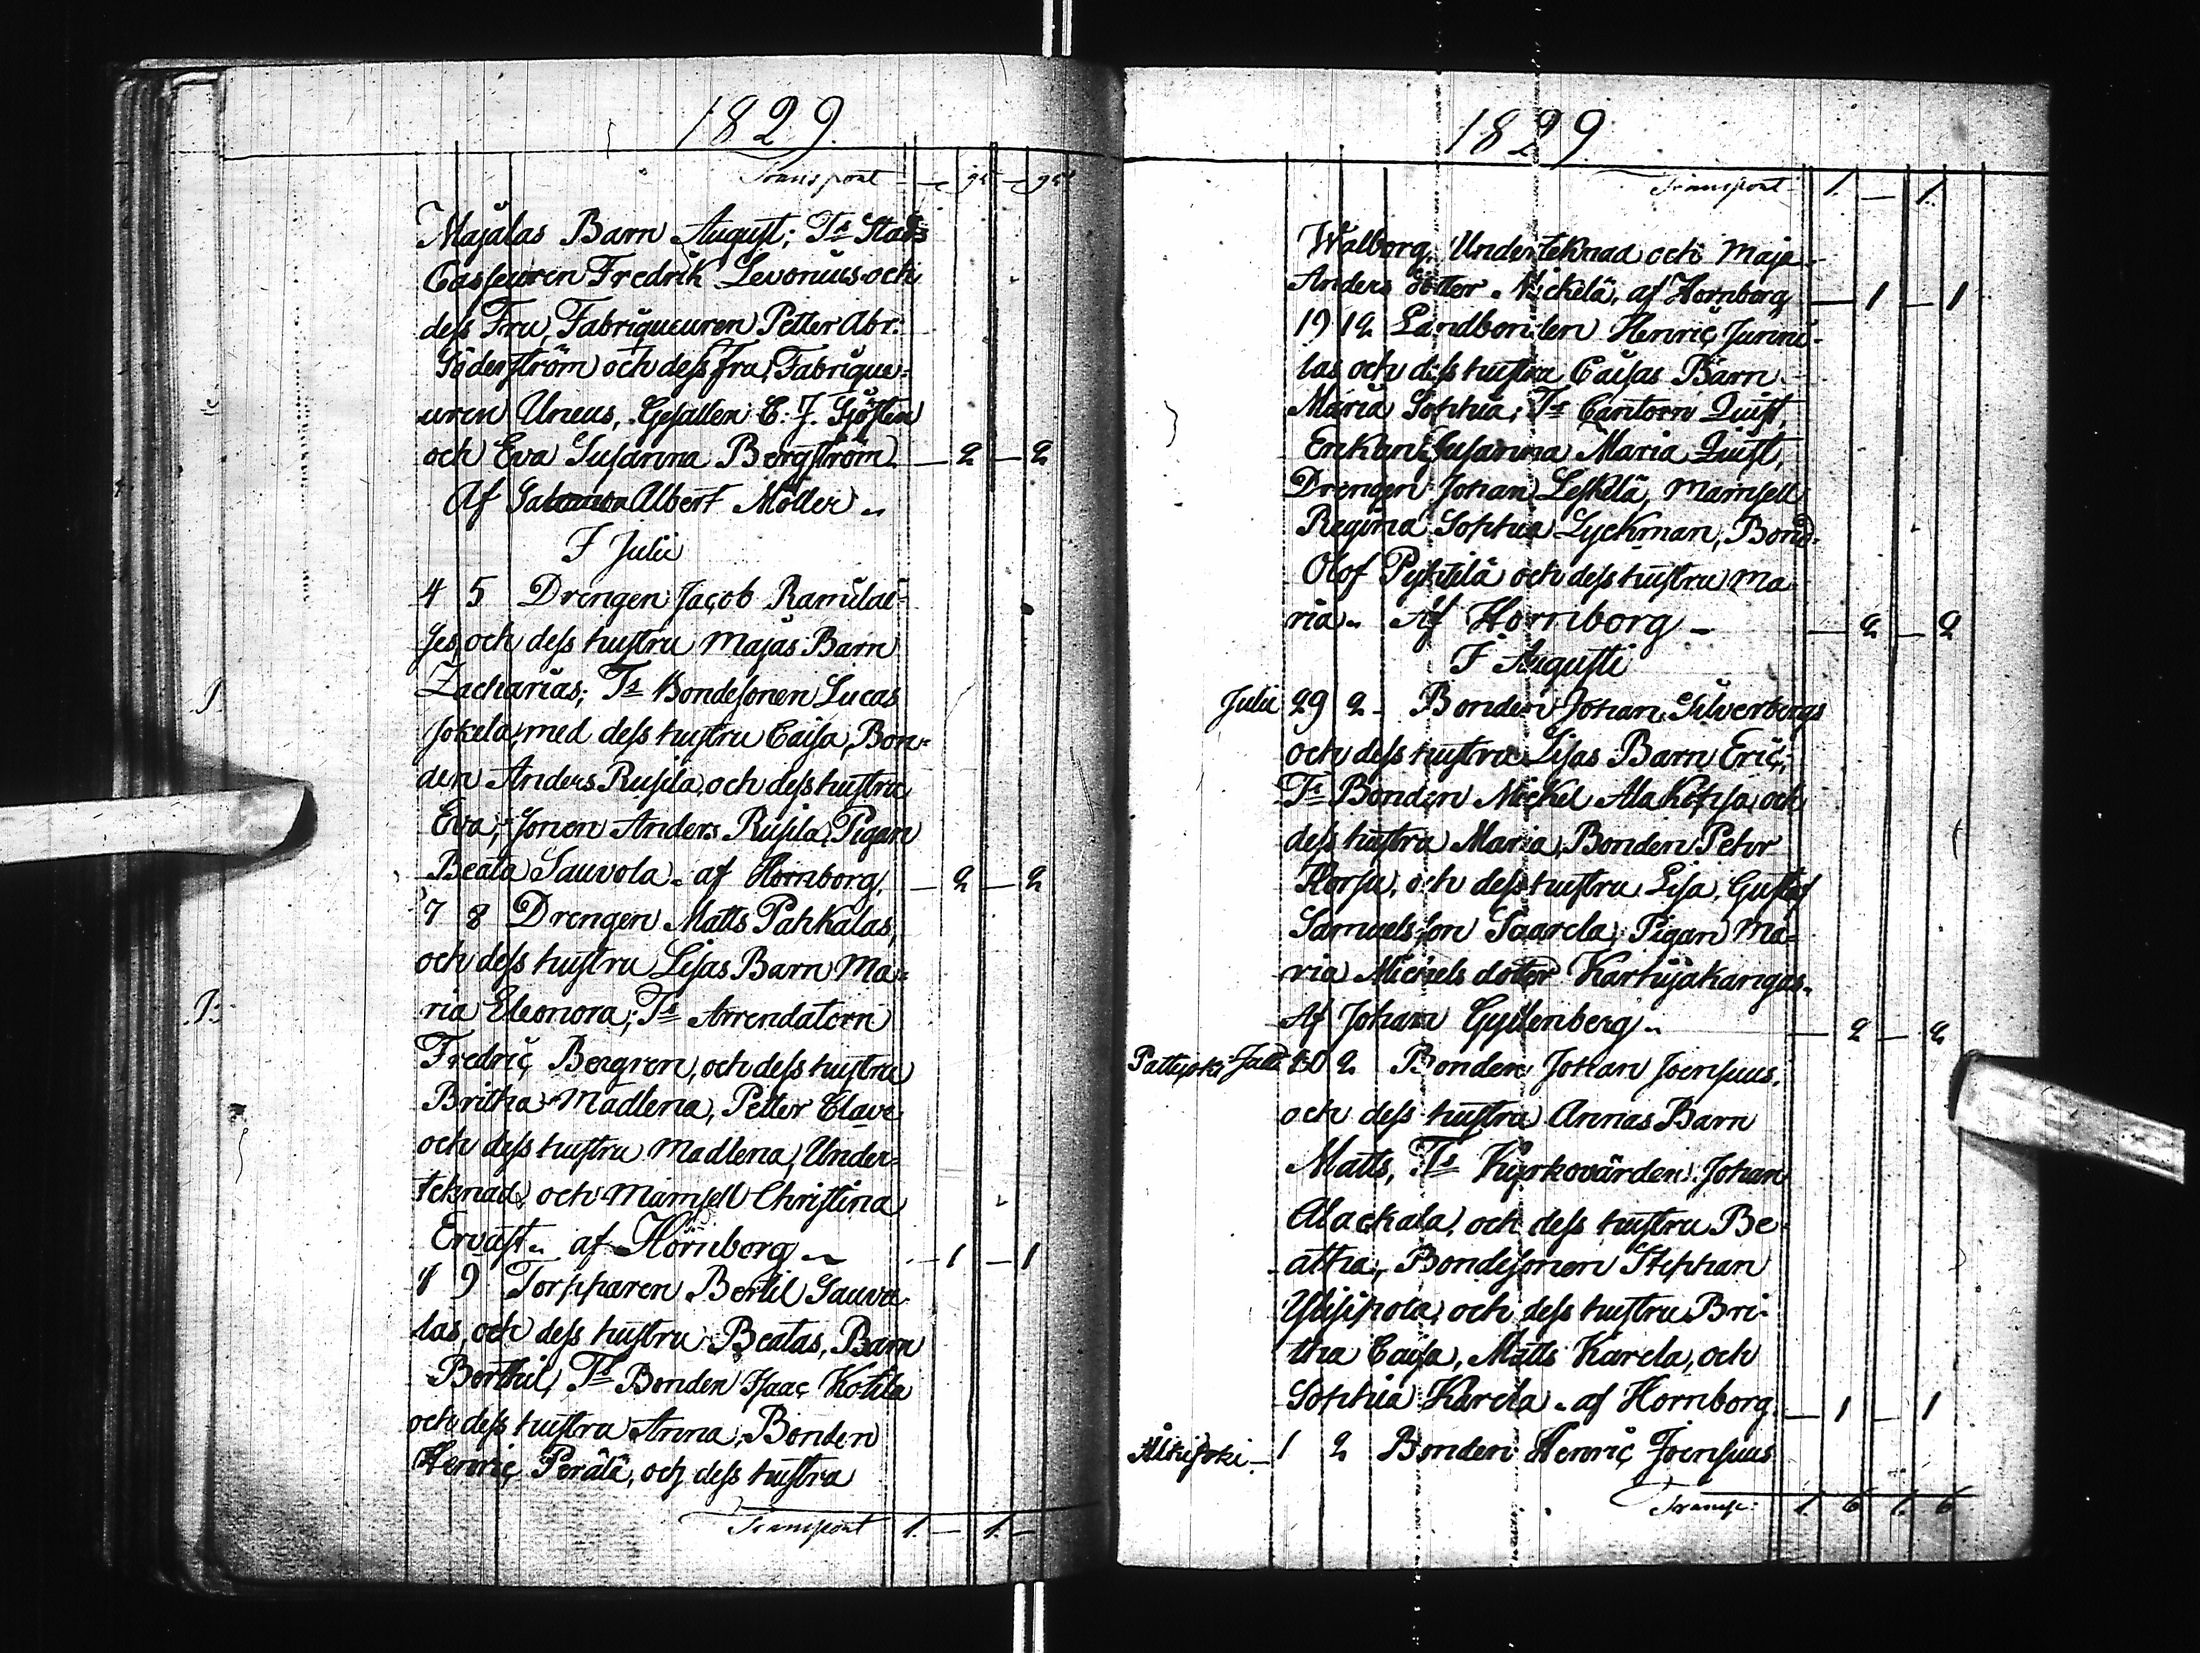 1829.
Transport — 95 — 95
Majalas Barn August; Ts Stads
Casseuren Fredrik Levonius och
dess Fru, Fabriqueuren Petter Abr.
Söderström och dess fru, Fabrique-
uren Uneus, Gesällen C. J. Sjöstén
och Eva Susanna Bergström. — 2 — 2
Af Albert Möller.
I Julii
4 5 Drengen Jacob
ses och dess hustru Majas Barn
Zacharias; Ts Bondesonen Lucas
Jokela, med dess hustru Caisa, Bon-
den Anders Rusila, och dess hustru
Eva; Sonen Anders Rusila, Pigan
Beata Sauvola. af Hornborg. — 2 — 2
7 8 Drengen Matts Pahkalas,
och dess hustru Lisas Barn Ma-
ria Eleonora; Ts Arrendatorn
Fredric Bergren, och dess hustru
Britha Madlena, Petter Clave
och dess hustru Madlena, Under-
teknad och Mamsell Christina
Ervast. af Hornborg. — 1 — 1
8 9 Torpparen Bertil Sauvo-
las, och dess hustru Beatas, Barn
Berthil, Ts Bonden Isaac Kotila
och dess hustru Anna, Bonden
Henric Perälä, och dess hustru
Transport 1. — 1. —
1829.
Transport 1. — 1.
Walborg, Underteknad och Maja
Anders dotter Nickelä, af Hornborg — 1 — 1
19 12 Landbonden Henric Junni-
las och dess hustru Caisas Barn
Maria Sophia; Ts Cantorn Quist,
Enkan Susanna Maria Quist,
Drengen Johan Leskelä, Mamsell
Regina Sophia Lyckman, Bond.
Olof Pyhtilä och dess hustru Ma-
ria. Af Hornborg — 2 — 2
I Augusti
Julii 29 2 Bonden Johan Silverbergs
och dess hustru Lisas Barn Eric;
Ts Bonden Mickel Alakopsa, och
dess hustru Maria, Bonden Pehr
Korsu, och dess hustru Lisa, Gustaf
Samuelsson Saarela, Pigan Ma-
ria Michels doter Karhujakangas.
Af Johan Gyllenberg. — 2 — 2
Pattijoki Julii 2 Bonden Johan Joensuus,
och dess hustru Annas Barn
Matts, Ts Kyrkovärden Johan
Alackala, och dess hustru Be-
atha, Bondesonen Stephan
Ylisipola, och dess hustru Bri-
tha Caisa, Matts Karela, och
Sophia Karela. af Hornborg. — 1 — 1
1 2 Bonden Henric Joensuus
Transp. 1. 6 1. 6